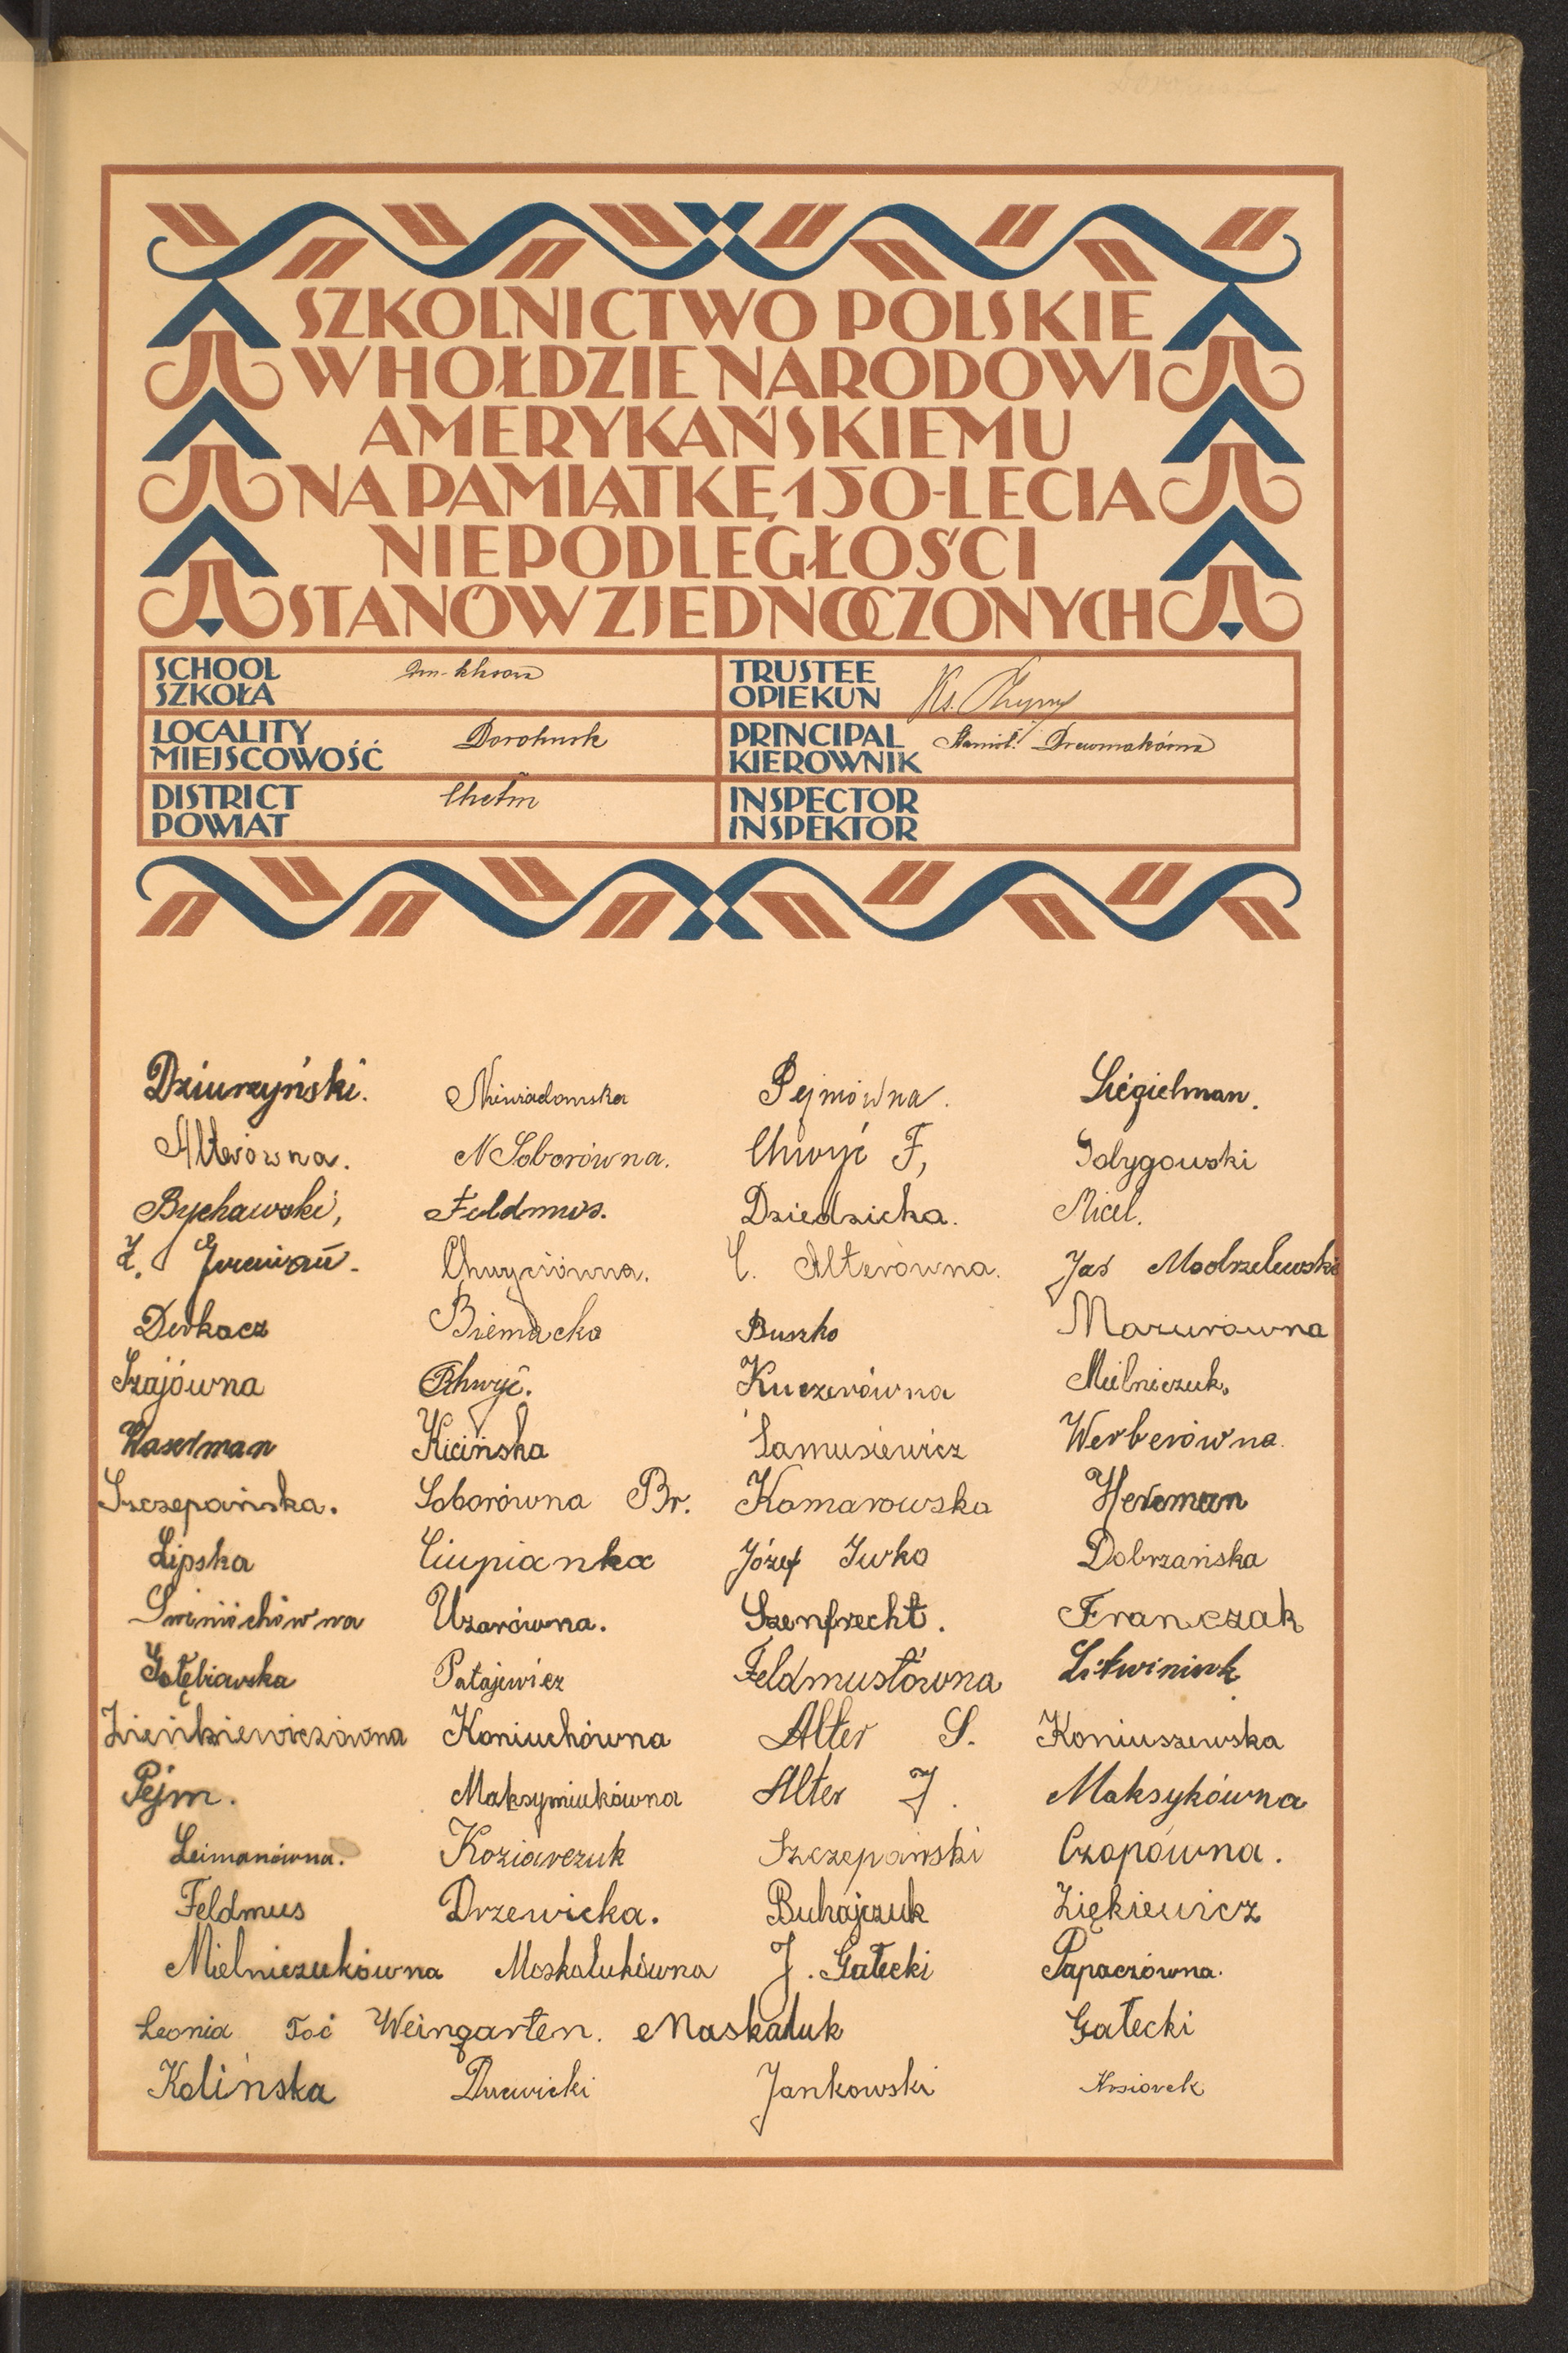 SZKOLNICTWO POLSKIE
W HOŁDZIE NARODOWI
AMERYKAŃSKIEMU
NA PAMIĄTKĘ 150-LECIA
NIEPODLEGŁOŚCI
STANÓW ZJEDNOCZONYCH
SCHOOL
SZKOŁA
TRUSTEE
OPIEKUN Ks.
LOCALITY
MIEJSCOWOŚĆ Dorohusk
PRINCIPAL
KIEROWNIK
DISTRICT
POWIAT Chełm
INSPECTOR
INSPEKTOR
Dziurzyński. Niewiadomska Pejmówna. Sięgielman.
Alterówna. N Soborówna. Chwyć F, Gołygowski
Bychawski, Feldmus. Dziedzicka. Micel.
Chwyciówna. C. Alterówna. Jaś Modrzelewski
Derkacz Biernacka Buszko Mazurówna
Szajówna Chwyć. Kuczerówna Mielniczuk.
Waserman Kicińska Samusiewicz Werberówna.
Szczepańska. Soborówna Br. Komarowska Herman
Lipska Ciupianka Józef Iwko Dobrzańska
Swiniochówna Uzarówna. Szenfrecht. Franczak
Gołębiowska Patajewicz Feldmusłówna Litwiniuk
Zieńkiewiczówna Koniuchówna Alter S. Koniuszewska
Pejm. Maksymiukówna Alter J. Maksykówna
Leimanówna. Koziarczuk Szczepański Czopówna.
Feldmus Drzewicka. Buhajczuk Ziękiewicz
Mielniczukówna Moskalukówna J. Gałecki Papaczówna.
Leonia Toć Weingarten. Maskaluk Gałecki
Kolińska Drzewicki Jankowski Krsiorek